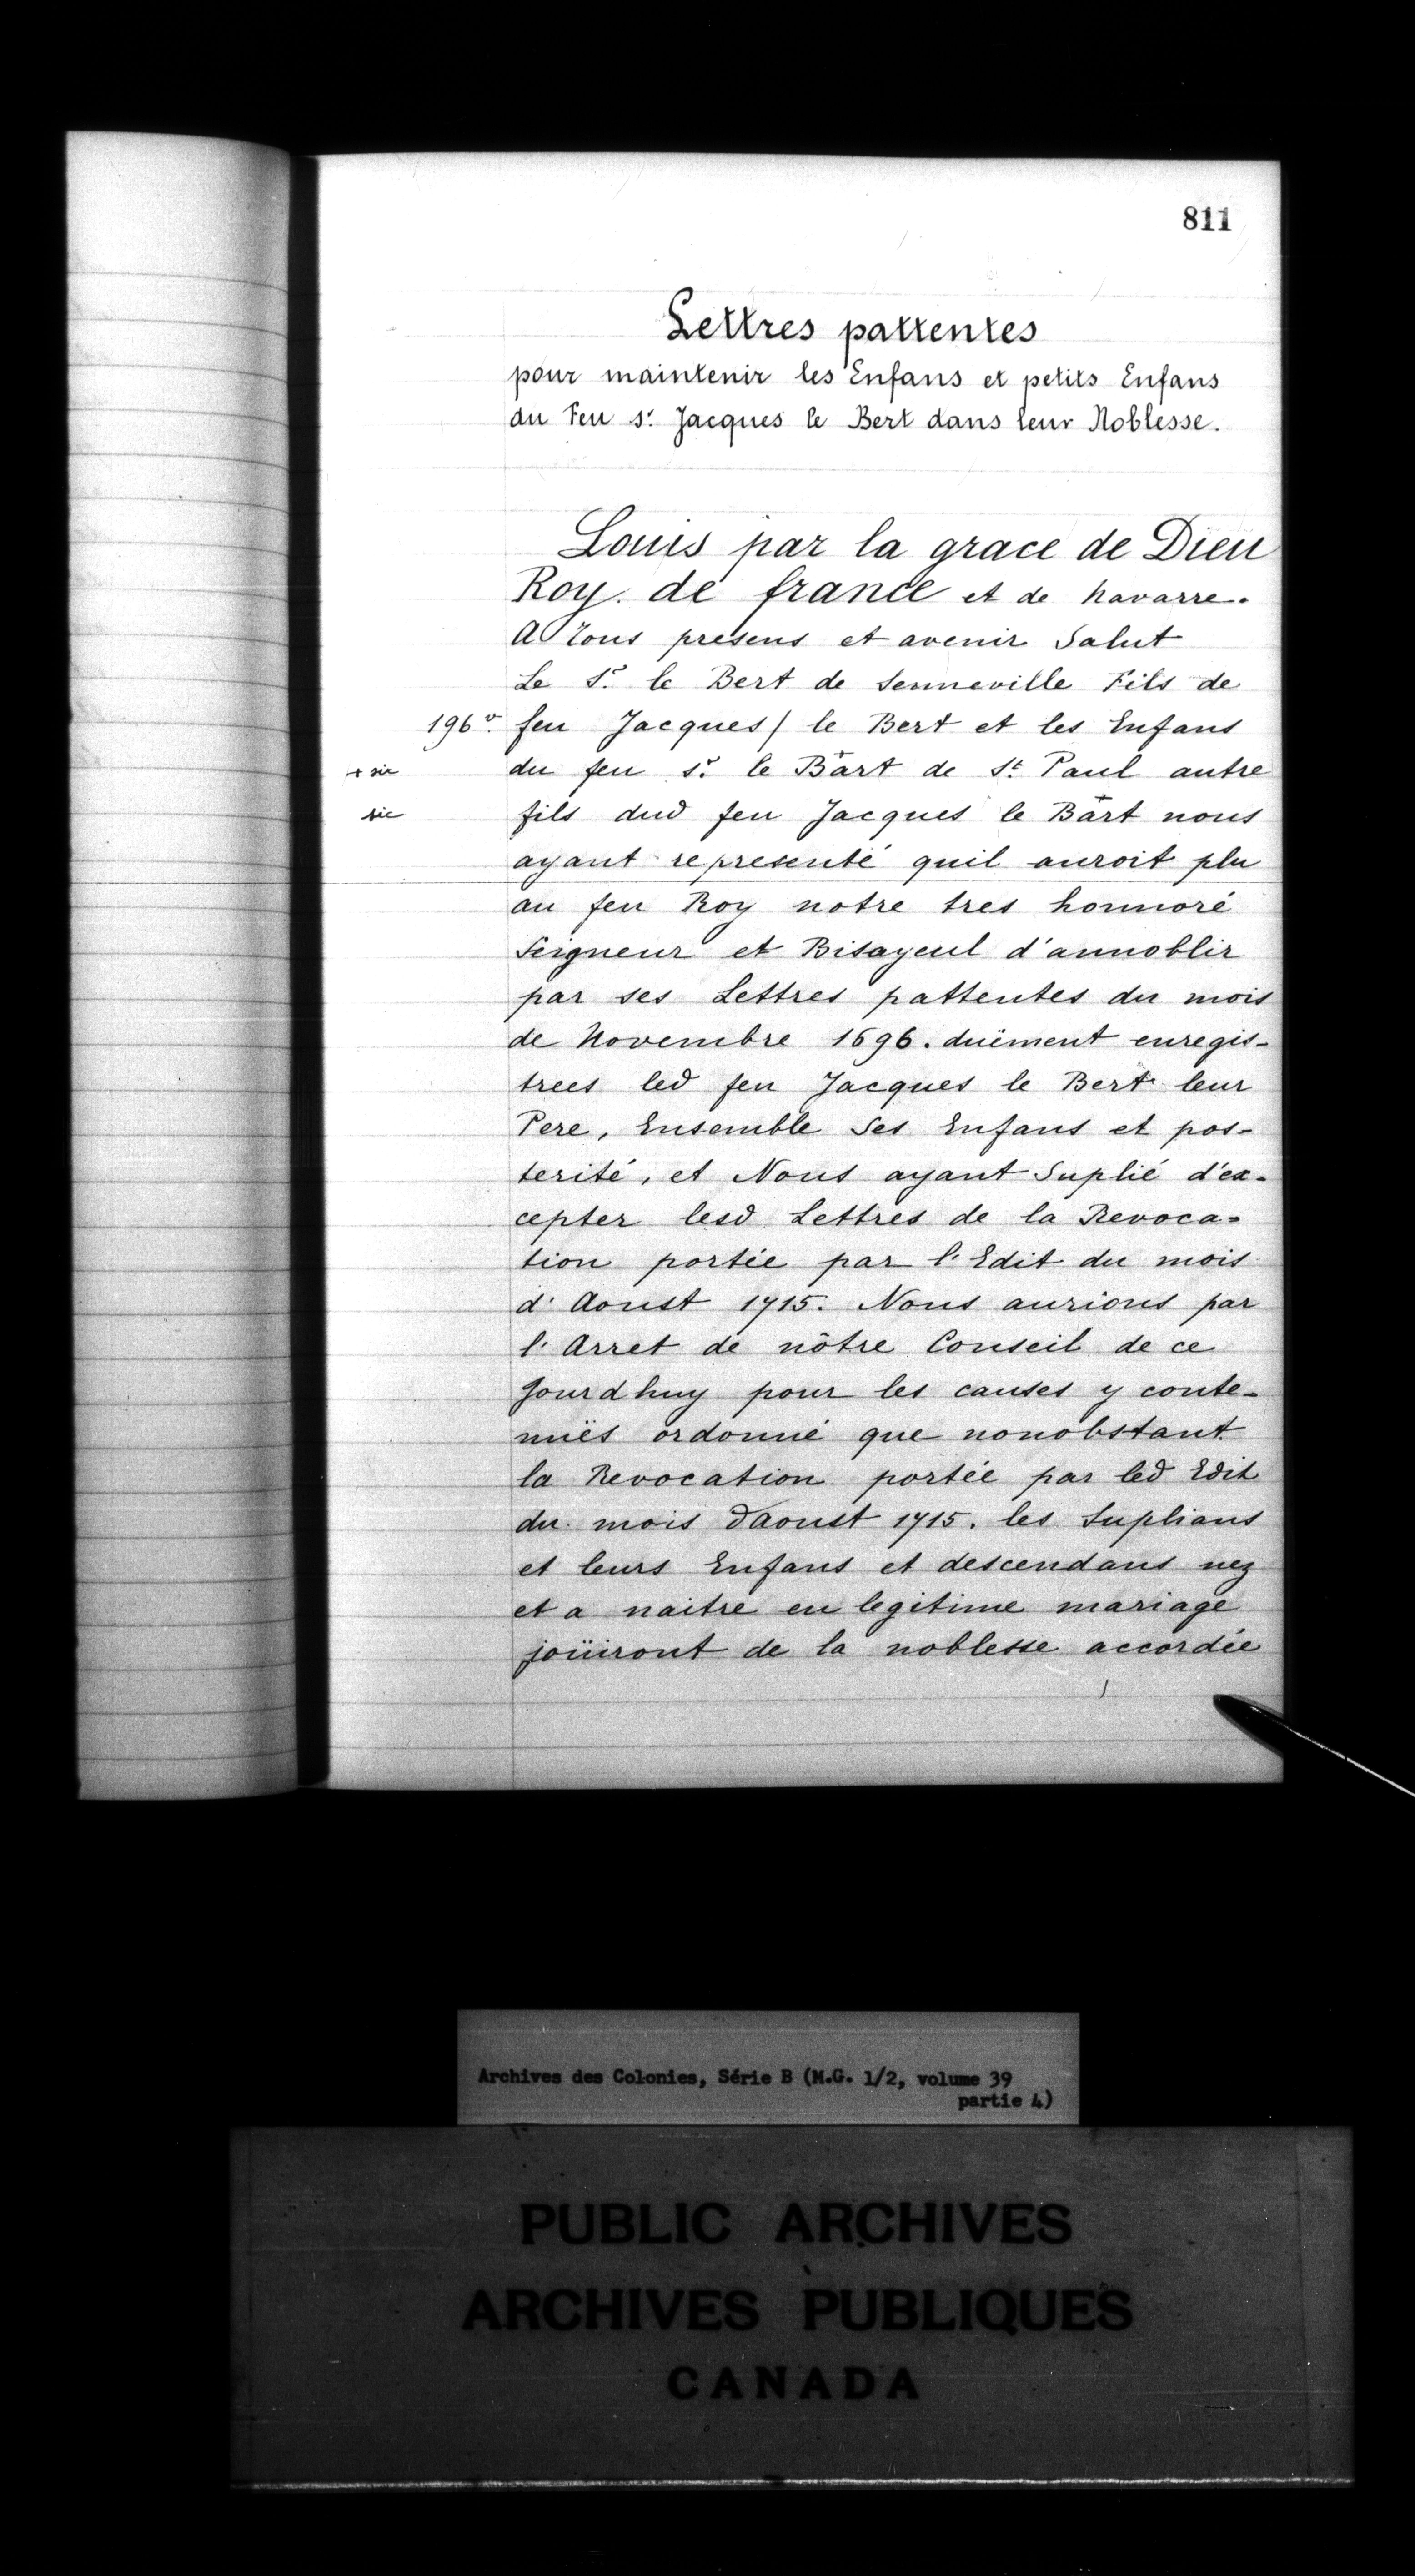 811
Lettres pattentes
pour maintenir les Enfans et petits Enfans
du Feu sr. Jacques le Bert dans leur Noblesse.
Louis par la grace de Dieu
Roy. de france et de Navarre.
A Tous presens et avenir Salut
Le Sr. le Bert de Senneville Fils de
196 v. feu Jacques / le Bert et les Enfans
+ sic du feu sr. le Bart + de St. Paul autre
sic fils dud feu Jacques le Bart + nous
ayant representé quil auroit plu
au feu Roy notre tres honnoré
Seigneur et Bisayeul d'annoblir
par ses Lettres pattentes du mois
de Novembre 1696. duëment enregis-
trees led feu Jacques le Bert leur
Pere, Ensemble Ses Enfans et pos-
terité, et Nous ayant Suplié d'ex-
cepter lesd Lettres de la Revoca-
tion portée par l'Edit du mois
d'Aoust 1715. Nous aurions par
l'Arret de nôtre Conseil de ce
Jourdhuy pour les causes y conte-
nuës ordonné que nonobstant
la Revocation portée par led Edit
du mois daoust 1715. les Suplians
et leurs Enfans et descendans nez
et a naitre en legitime mariage
joüiront de la noblesse accordée
Archives des Colonies, Série B (M.G. 1/2, volume 39
partie 4)
PUBLIC ARCHIVES
ARCHIVES PUBLIQUES
CANADA